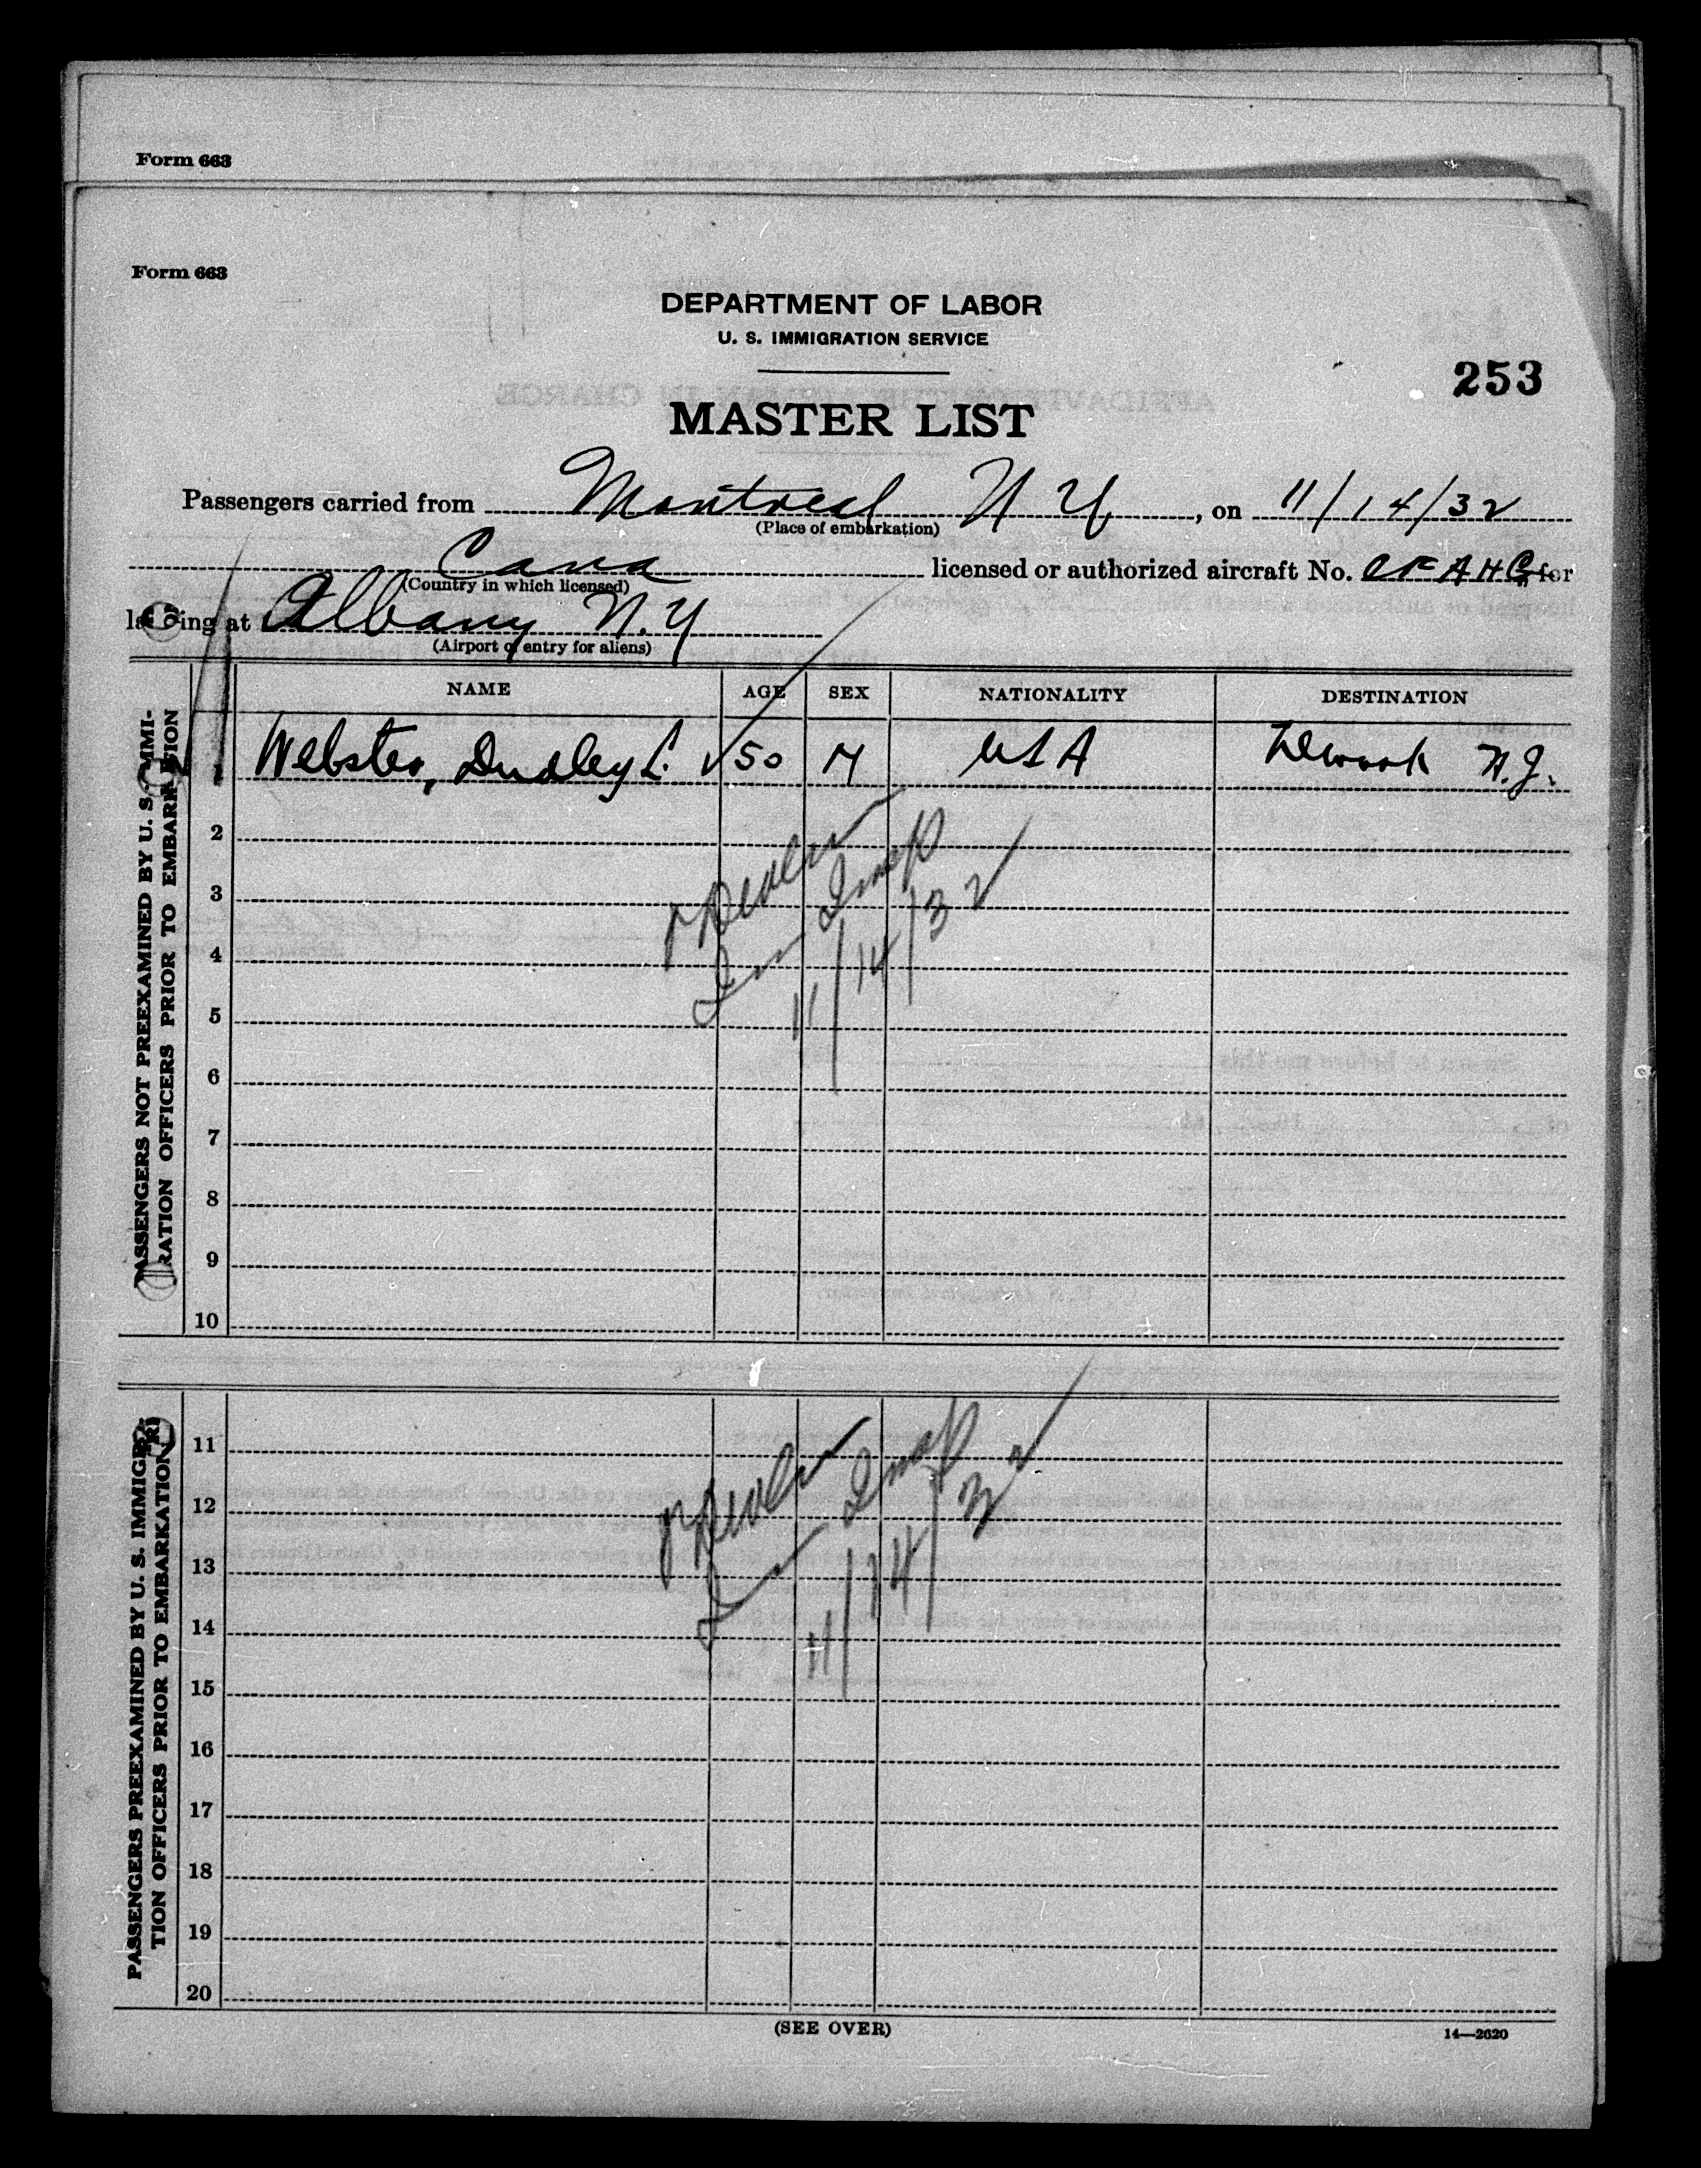 Form 663
Form 663
DEPARTMENT OF LABOR
U. S. IMMIGRATION SERVICE
253
MASTER LIST
Passengers carried from Montreal N Y, on 11/14/32
(Place of embarkation)
Cana licensed or authorized aircraft No. CF AHG for
(Country in which licensed)
landing at Albany N.Y
(Airport of entry for aliens)
NAME AGE SEX NATIONALITY DESTINATION
PASSENGERS NOT PREEXAMINED BY U. S. IMMI-
RATION OFFICERS PRIOR TO EMBARKATION
1 Webster, Dudley L. 50 M USA Newark N.J.
2
3
4
5
6
7
8
9
10
Imm Insp
11/14/32
PASSENGERS PREEXAMINED BY U. S. IMMIGRA-
TION OFFICERS PRIOR TO EMBARKATION
11
12
13
14
15
16
17
18
19
20
Imm Insp
11/14/32
(SEE OVER)
14—2620